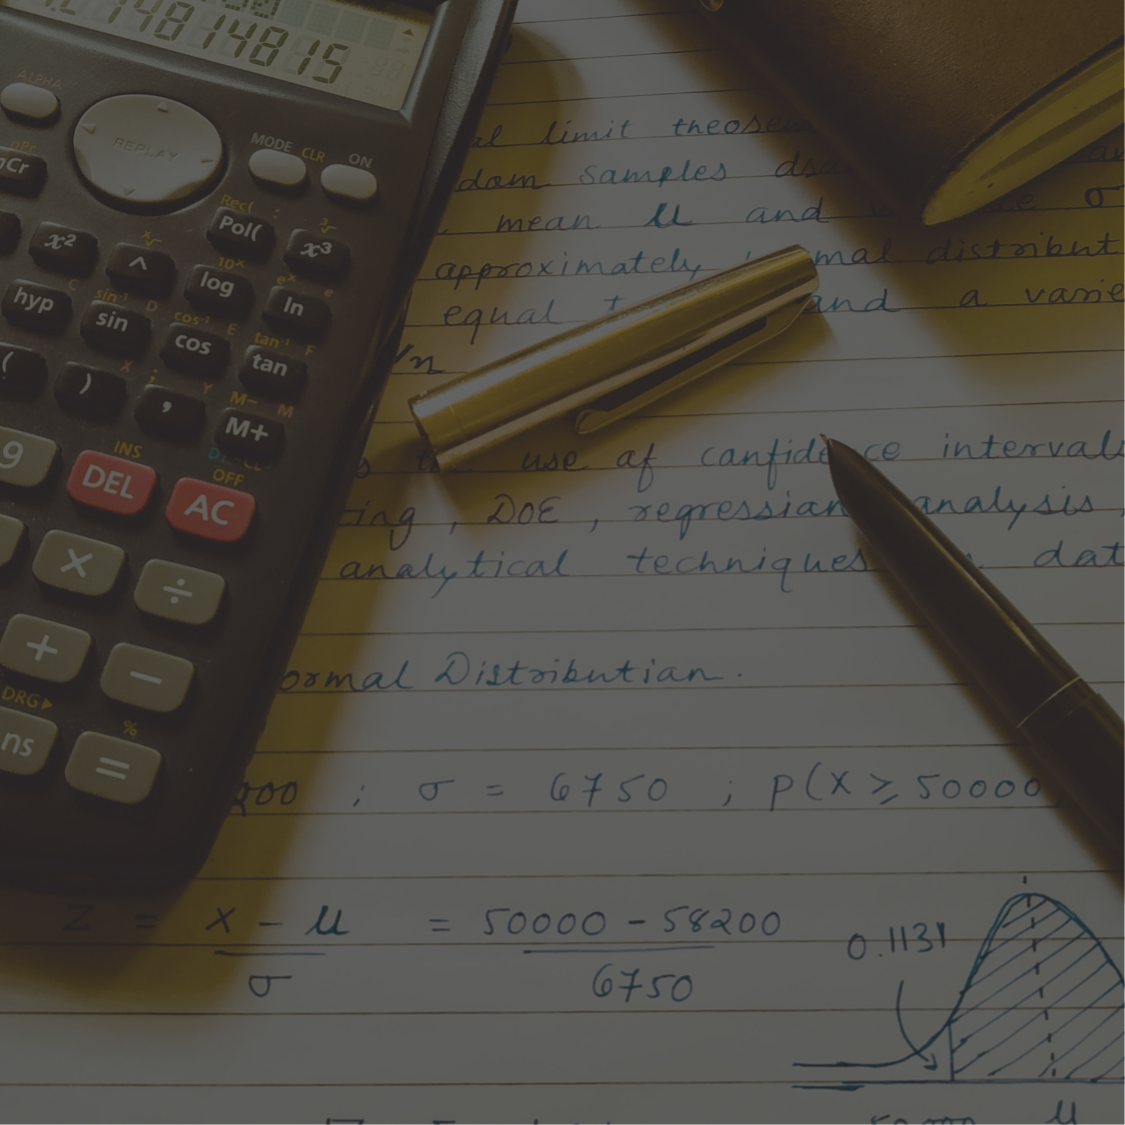 14814815
ALPHA
REPLAY
MODE CLR ON
nPr
nCr
Rec( :
Pol( x³
x² ^
10ˣ eˣ e
hyp log ln
sin⁻¹ D cos⁻¹ E tan⁻¹ F
sin cos tan
( ) , M+
X ; Y M− M
9 DEL AC
INS OFF
× ÷
+ −
DRG▶ %
ns =
al limit theo
dom samples
mean μ and σ
approximately mal distribut
equal and a varie
/n
use af canfide ce intervals
ting , DOE , regressian analysis
analytical techniques dat
ormal Distributian .
200 ; σ = 6750 ; P(X ≥ 50000
Z = X − μ = 50000 − 58200
σ 6750
0.1131
μ